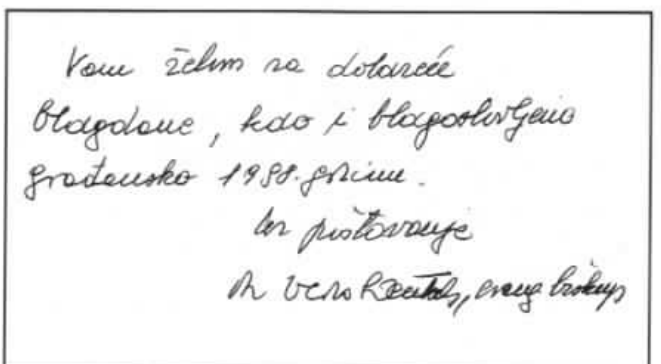 Vam želim za dolazeće
blagdane, kao i blagoslovljenu
građansko 1998. godinu.
Uz poštovanje
biskup